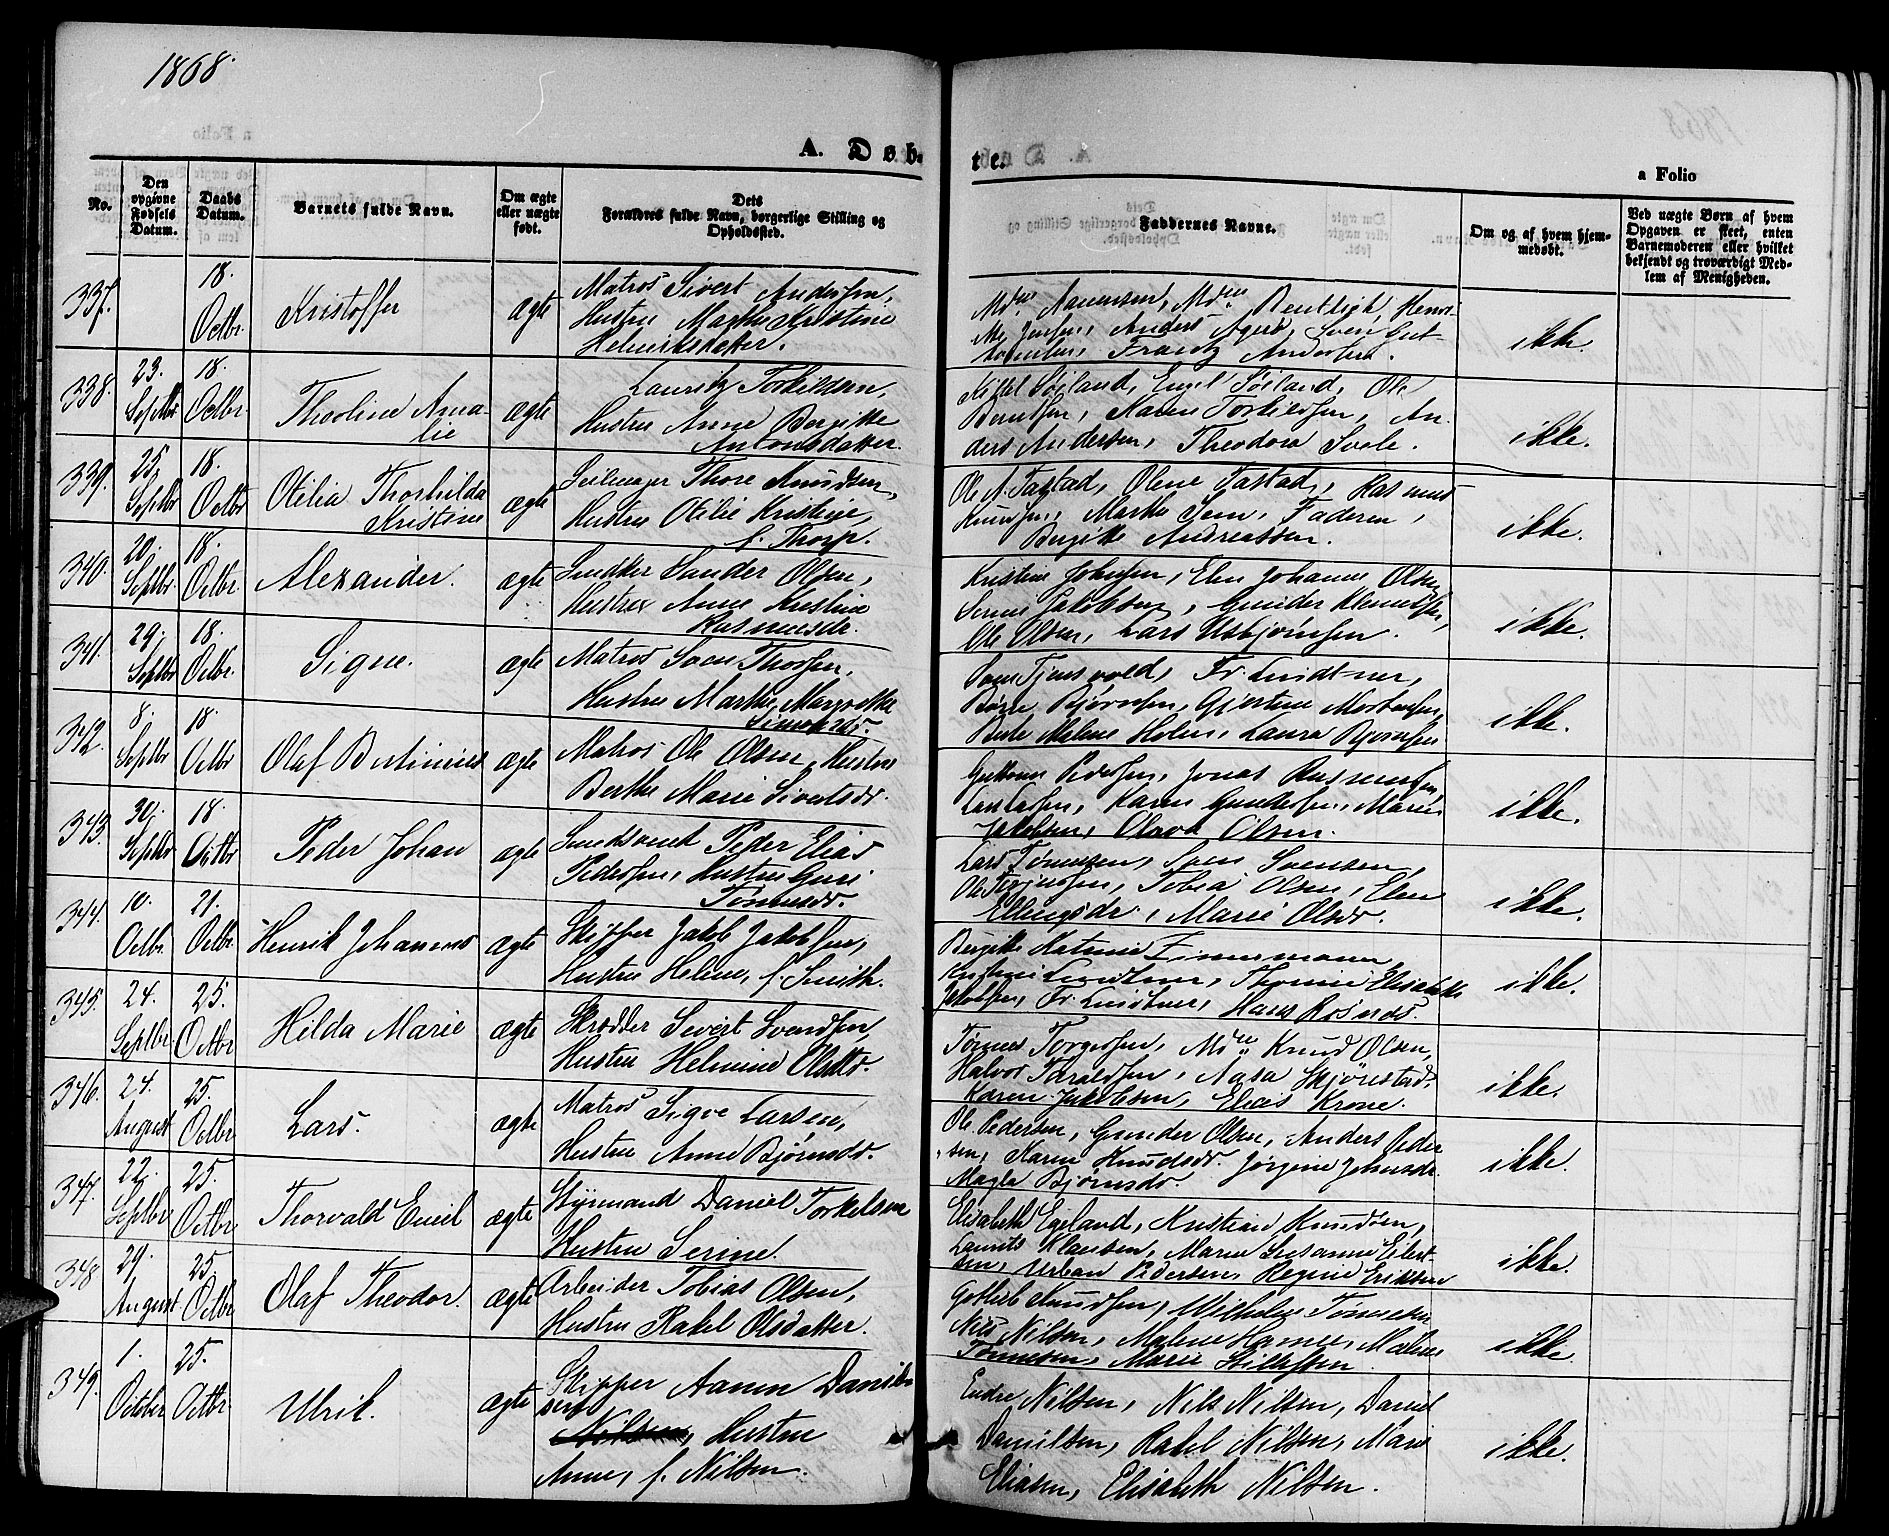 1868.
A. Døb-
te.
a Folio
No.
Den opgivne Fødsels Datum.
Daabs Datum.
Barnets fulde Navn.
Om ægte eller uægte født.
Dets Forældres fulde Navn, borgerlige Stilling og Opholdssted.
Faddernes Navne.
Om og af hvem hjemmedøbt.
Ved uægte Børn af hvem Opgaven er skeet, enten Barnemoderen eller hvilket bekjendt og troværdigt Medlem af Menigheden.
337.
18. Octbr.
Kristoffer
ægte
Matros Sivert Andersen,
Hustru Marthe Kristine
Henriksdatter.
ikke.
338.
23. Septbr
18. Octbr.
Thorline Amalie
ægte
Lauritz Torkildsen,
Hustru Anne Bergitte
Antonsdatter.
Berntsen, Karen Torkildsen, An-
ders Andersen, Theodora Svele.
ikke.
339.
25. Septbr
18. Octbr
Otilia Thorhilda
Kristine
ægte
Seilmager Thore Knudsen,
Hustru Otilie Kristine,
f. Thorp.
Ole N. Tastad, Olene Tastad, Rasmus
Knudsen, Marthe Sem, Faderen,
Bergitte Andreassen.
ikke.
340.
20. Septbr
18. Octbr.
Alexander.
ægte
Snedker Sander Olsen,
Hustru Anne Kristine
Rasmusdr.
Kristine Johnsen, Elen Johanne Olsen,
Serine Jakobsen, Gunder Klemetsen,
Ole Olsen, Lars Asbjørnsen.
ikke.
341.
29. Septbr
18. Octbr.
Signe.
ægte
Matros Sven Thorsen,
Hustru Marthe Margrethe
Simonsdr.
Sven Tjensvold, Fr. Lindtner,
Børre Bjørnsen, Gjertine Mortensen,
Berte Malene Holm, Laura Bjørnsen
ikke.
342.
8. Septbr
18. Octbr
Olaf Bertinius
ægte
Matros Ole Olsen, Hustru
Berthe Marie Sivertsdr.
Guttorm Pedersen, Jonas Rasmussen,
Lars Larsen, Karen Gundersen, Marie
Jakobsen, Olava Olsen.
ikke.
343.
30. Septbr
18. Octbr
Peder Johan
ægte
Smedsvend Peder Elias
Pedersen, Hustru Guri
Tønnesdr.
Lars Tønnesen, Sven Svensen,
Ole Terjesen, Tobia Olsen, Elen
Ellingsdr., Marie Olsdr.
ikke.
344.
10. Octbr.
21. Octbr.
Henrik Johannes
ægte
Skipper Jakob Jakobsen,
Hustru Heline, f. Smith.
Bergitte Katrine Zimmermann,
Kristine Lindtner, Thomine Elisabeth
Jakobsen, Fr. Lindtner, Hans Rosnæs.
ikke.
345.
24. Septbr
25. Octbr
Hilda Marie
ægte
Skrædder Sivert Svendsen,
Hustru Helmine Olsdtr.
Tønnes Torgersen, Mdm Knud Olsen,
Halvor Taraldsen, Aasa Skjørestad,
Karen Jakobsen, Elias Krone.
ikke.
346.
24. August
25. Octbr
Lars.
ægte
Matros Sigve Larsen,
Hustru Anne Bjørnsdr.
Ole Pedersen, Gunder Olsen, Anders Peder-
sen, Karen Knudsdr. Jørgine Johnsdr.
Magla Bjørnsdr.
ikke.
347.
22. Septbr
25. Octbr
Thorvald Emil
ægte
Styrmand Daniel Torkelsen
Hustru Serine.
Elisabeth Egeland, Kristian Knudsen,
Laurits Klausen, Marie Susanne Eilert-
sen, Urban Pedersen, Regine Eriksen
ikke.
348
29. August
25. Octbr
Olaf Theodor.
ægte
Arbeider Tobias Olsen,
Hustru Rakel Olsdatter.
Gotlieb Knudsen, Wilhelm Tønnesen
Nils Nilsen, Malene Hamre, Malene
Tønnesen, Marie Hilsen.
ikke
349.
1. October
25. Octbr.
Ulrik.
ægte
Skipper Aanen Daniel-
sen
Nilsen, Hustru
Anne, f. Nilsen.
Endre Nilsen, Nils Nilsen, Daniel
Danielsen, Rakel Nilsen, Marie
Eliasen, Elisabeth Nilsen.
ikke.